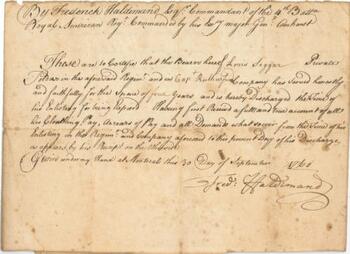 By Frederick Haldimand Esqr. Commandant of the 4th Batta
Royal American Regt. Commanded by his Excy major Genl. Amherst
These are to Certifie that the Bearer hereof Lewis Private
Soldier in the aforesaid Regimt. and in Capt. Company has Served honestly
and faithfully for the Space of four Years and is hereby Discharged the Time of
his Enlisting for being Expired Having first Received a full and true account of all
his Cloathing, Pay, Arrears of Pay and all Demands whatsoever from the Time of his
Enlisting in this Regimt. and Company aforesaid to this present Day of his Discharge,
as appears by his Receipt on the
Given under my Hand at Montreal this 30 Day of September
Fredk: Haldimand